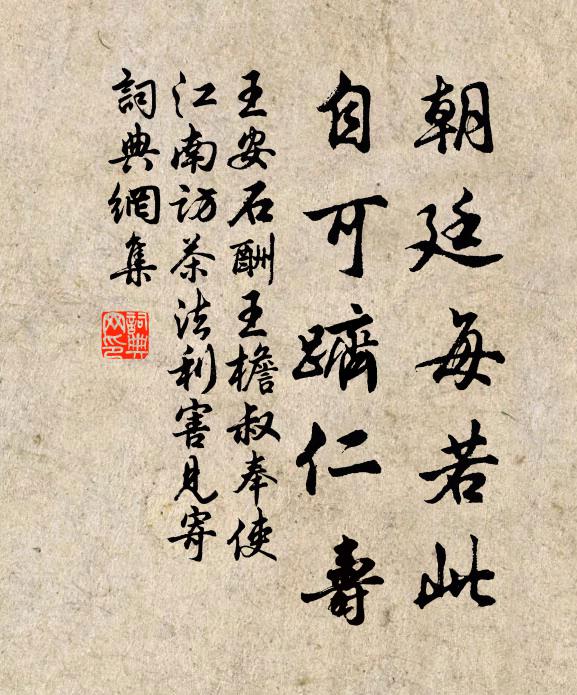 朝廷每若此
自可躋仁壽
王安石酬王檐叔奉使
江南訪茶法利害見寄
詞典網集
詞典网印